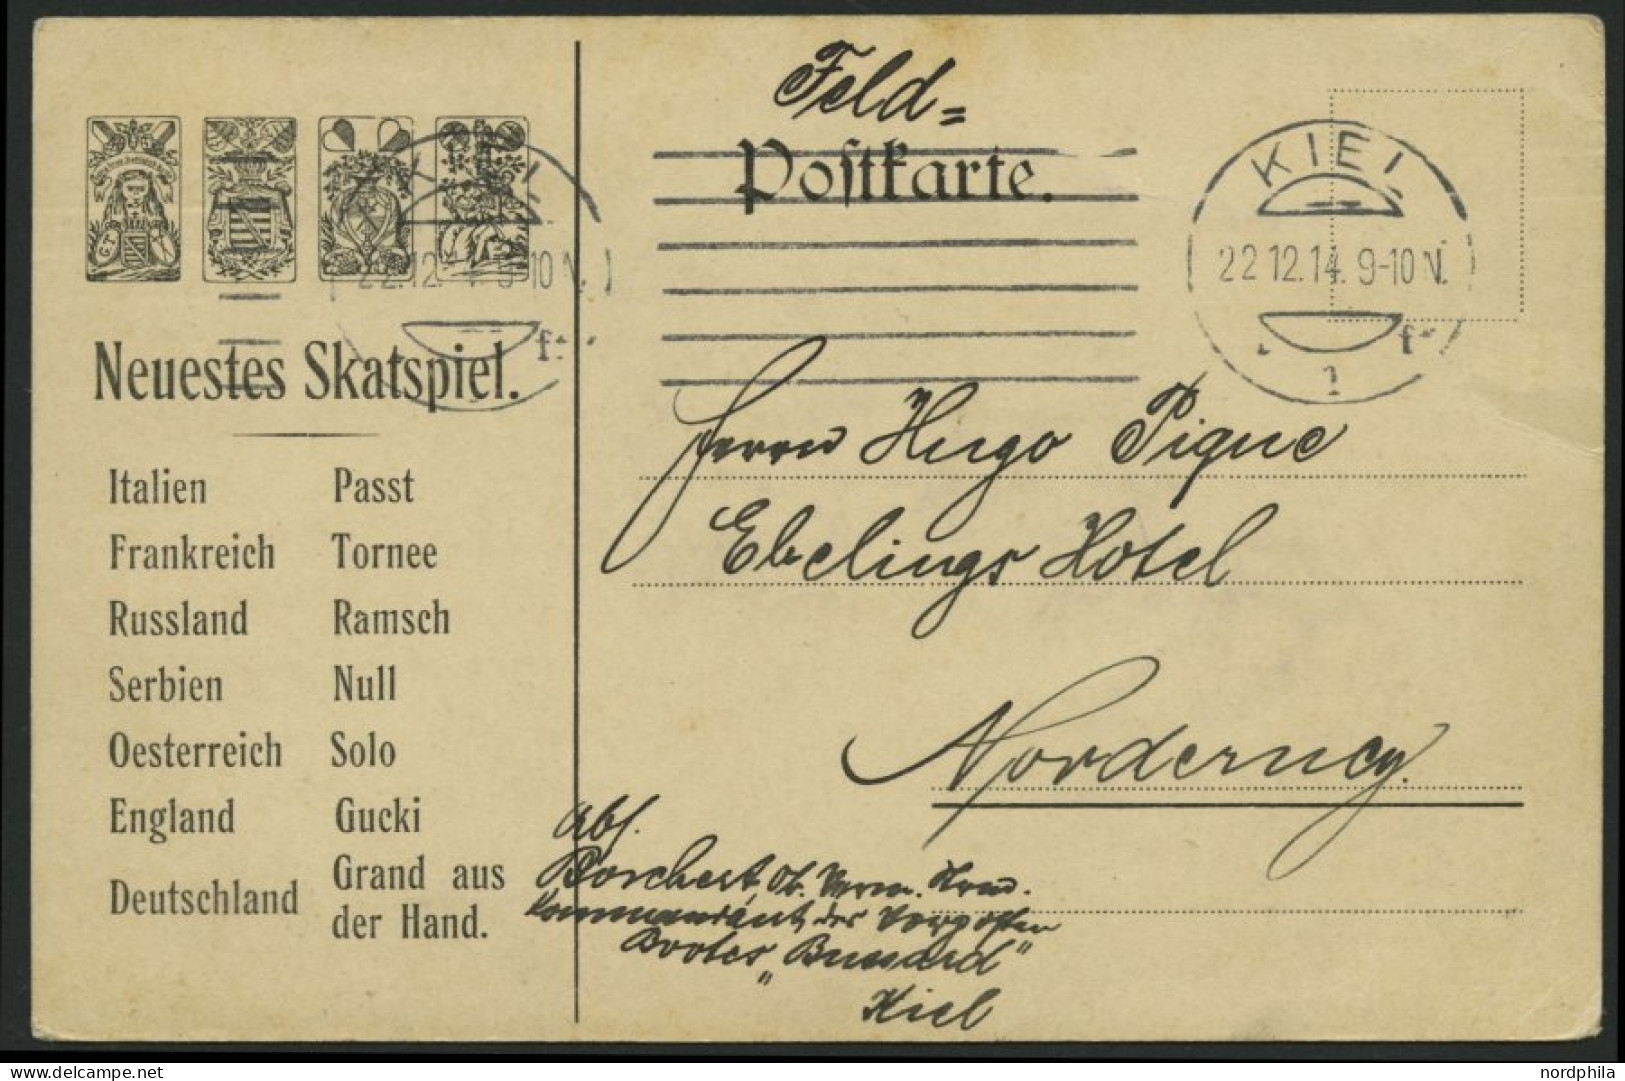 Feld=
Postkarte.
KIEL
22.12.14. 9-10 V.
KIEL
22 12.14. 9-10 V.
Neuestes Skatspiel.
Italien Passt
Frankreich Tornee
Russland Ramsch
Serbien Null
Oesterreich Solo
England Gucki
Deutschland Grand aus der Hand.
Herrn Hugo Pique
Ebelings Hotel
Norderney.
Abs.
Borchert, Ob.
Kommandant des Vorposten
Bootes „Bussard"
Kiel
delcampe.net
nordphila